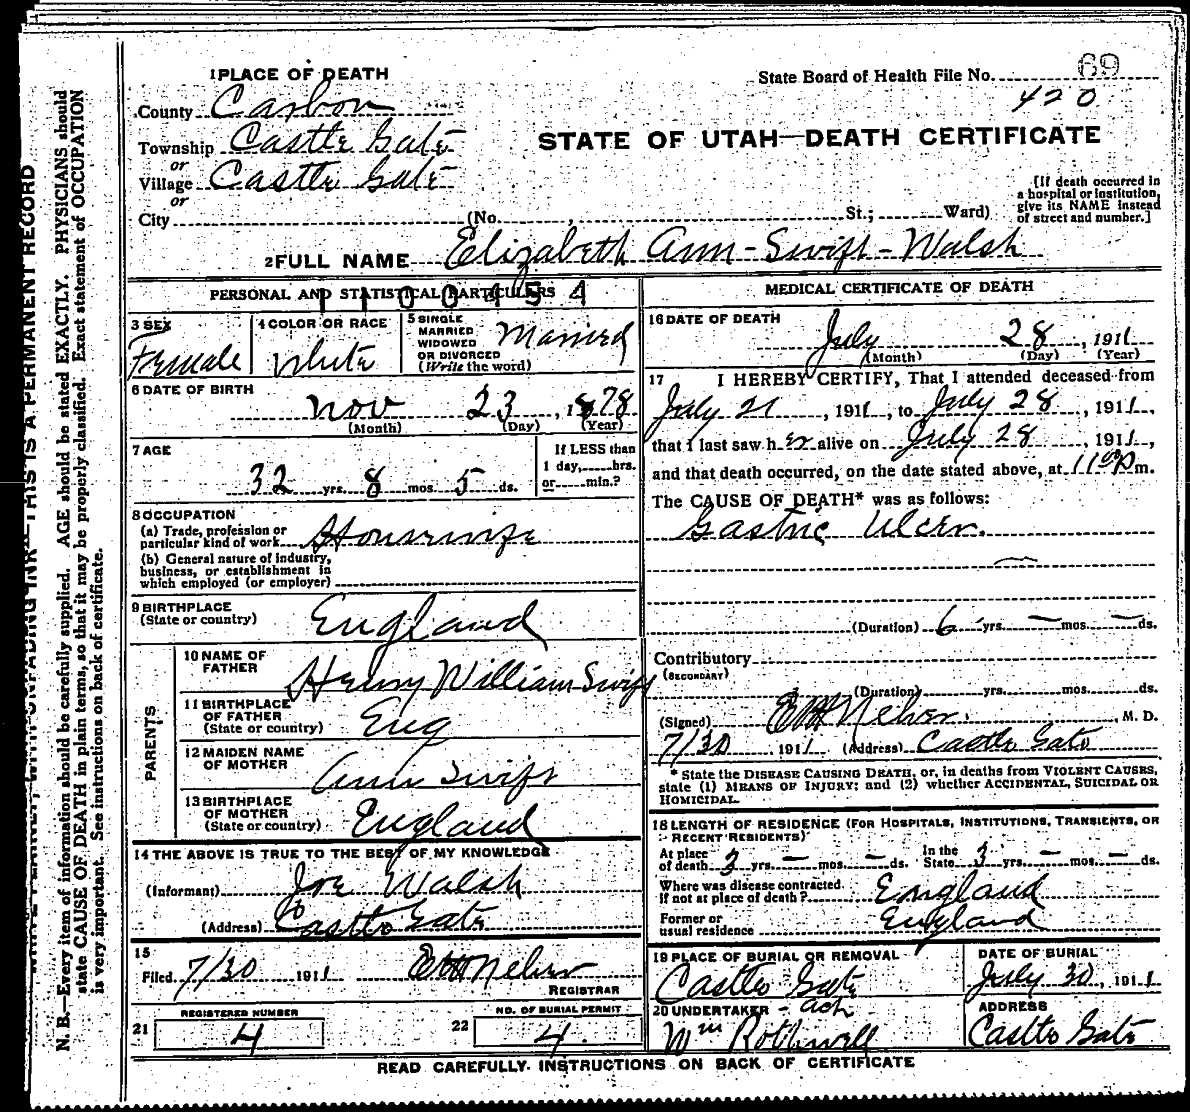 1 PLACE OF DEATH
State Board of Health File No. 69
County Carbon
420
Township Castle Gate
STATE OF UTAH—DEATH CERTIFICATE
or
Village Castle Gate
or
City (No. , St.; Ward)
[If death occurred in
a hospital or institution,
give its NAME instead
of street and number.]
2 FULL NAME Elizabeth Ann - Swift - Walsh
PERSONAL AND STATISTICAL PARTICULARS
1100454
3 SEX
Female
4 COLOR OR RACE
White
5 SINGLE
MARRIED
WIDOWED
OR DIVORCED
(Write the word)
Married
6 DATE OF BIRTH
Nov 23, 1878
(Month) (Day) (Year)
7 AGE
32 yrs. 8 mos. 5 ds.
If LESS than
1 day, hrs.
or min.?
8 OCCUPATION
(a) Trade, profession or
particular kind of work Housewife
(b) General nature of industry,
business, or establishment in
which employed (or employer)
9 BIRTHPLACE
(State or country) England
PARENTS
10 NAME OF
FATHER Henry William Swift
11 BIRTHPLACE
OF FATHER
(State or country) Eng
12 MAIDEN NAME
OF MOTHER Ann Swift
13 BIRTHPLACE
OF MOTHER
(State or country) England
14 THE ABOVE IS TRUE TO THE BEST OF MY KNOWLEDGE
(Informant) Joe Walsh
(Address) Castle Gate
15
Filed 7/30 1911
REGISTRAR
21 REGISTERED NUMBER
4
22 NO. OF BURIAL PERMIT
4
MEDICAL CERTIFICATE OF DEATH
16 DATE OF DEATH
July 28, 1911
(Month) (Day) (Year)
17 I HEREBY CERTIFY, That I attended deceased from
July 21, 1911, to July 28, 1911,
that I last saw her alive on July 28, 1911,
and that death occurred, on the date stated above, at 11 00 P m.
The CAUSE OF DEATH* was as follows:
Gastric Ulcer.
(Duration) 6 yrs. — mos. — ds.
Contributory
(SECONDARY)
(Duration) yrs. mos. ds.
(Signed) , M. D.
7/30, 1911 (Address) Castle Gate
* State the DISEASE CAUSING DEATH, or, in deaths from VIOLENT CAUSES,
state (1) MEANS OF INJURY; and (2) whether ACCIDENTAL, SUICIDAL OR
HOMICIDAL.
18 LENGTH OF RESIDENCE (FOR HOSPITALS, INSTITUTIONS, TRANSIENTS, OR
RECENT RESIDENTS)
At place
of death 3 yrs. — mos. — ds.
In the
State 3 yrs. — mos. — ds.
Where was disease contracted.
If not at place of death? England
Former or
usual residence England
19 PLACE OF BURIAL OR REMOVAL
Castle Gate
DATE OF BURIAL
July 30, 1911
20 UNDERTAKER - ach
Wm Rothwell
ADDRESS
Castle Gate
READ CAREFULLY INSTRUCTIONS ON BACK OF CERTIFICATE
THIS IS A PERMANENT RECORD
N. B.—Every item of information should be carefully supplied. AGE should be stated EXACTLY. PHYSICIANS should
state CAUSE OF DEATH in plain terms, so that it may be properly classified. Exact statement of OCCUPATION
is very important. See instructions on back of certificate.